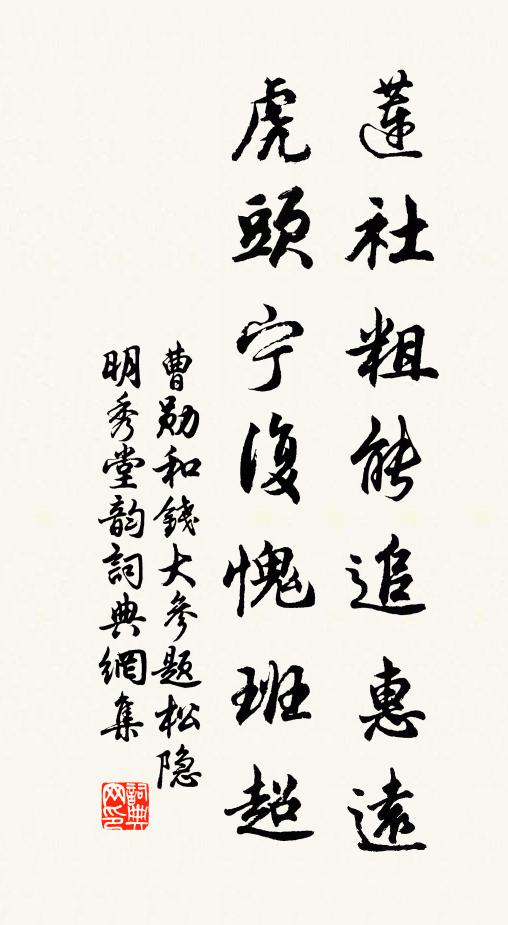 蓮社粗能追惠遠
虎頭宁復愧班超
曹勛和錢大參題松隐
明秀堂韵詞典網集
詞典网印